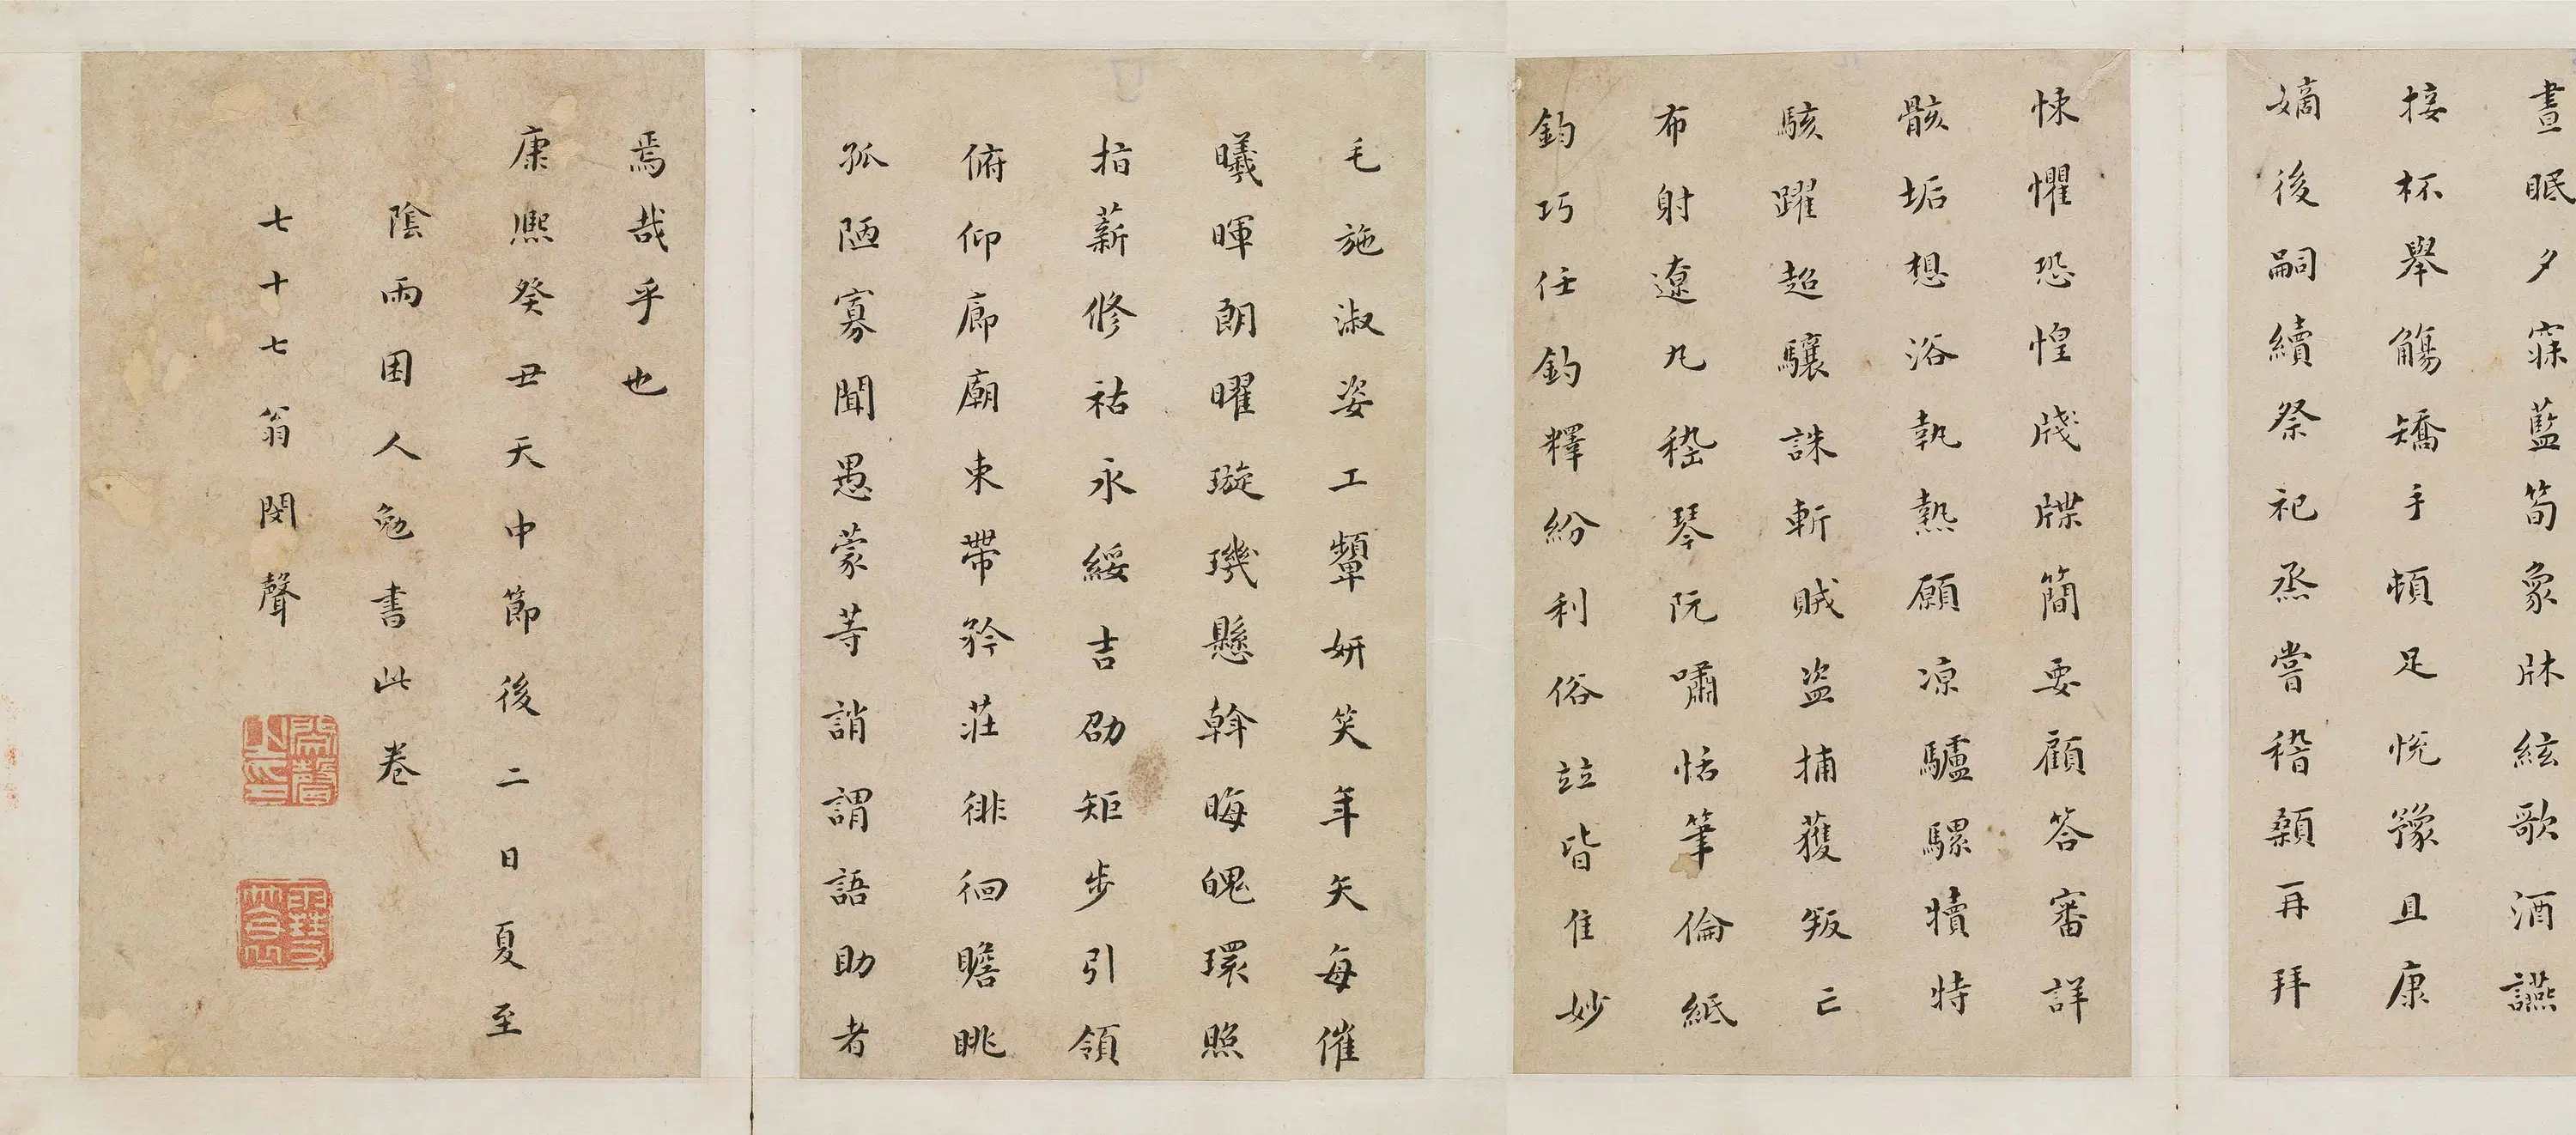 晝眠夕寐藍筍象牀絃歌酒讌
接杯舉觴矯手頓足悅豫且康
嫡後嗣續祭祀烝嘗稽顙再拜
悚懼恐惶牋牒簡要顧答審詳
骸垢想浴執熱願涼驢騾犢特
駭躍超驤誅斬賊盜捕獲叛亡
布射遼丸嵇琴阮嘯恬筆倫紙
鈞巧任釣釋紛利俗竝皆佳妙
毛施淑姿工顰妍笑年矢每催
曦暉朗曜璇璣懸斡晦魄環照
指薪修祜永綏吉劭矩步引領
俯仰廊廟束帶矜莊徘徊瞻眺
孤陋寡聞愚蒙等誚謂語助者
焉哉乎也
康熙癸丑天中節後二日夏至
陰雨困人勉書此卷
七十七翁閔聲